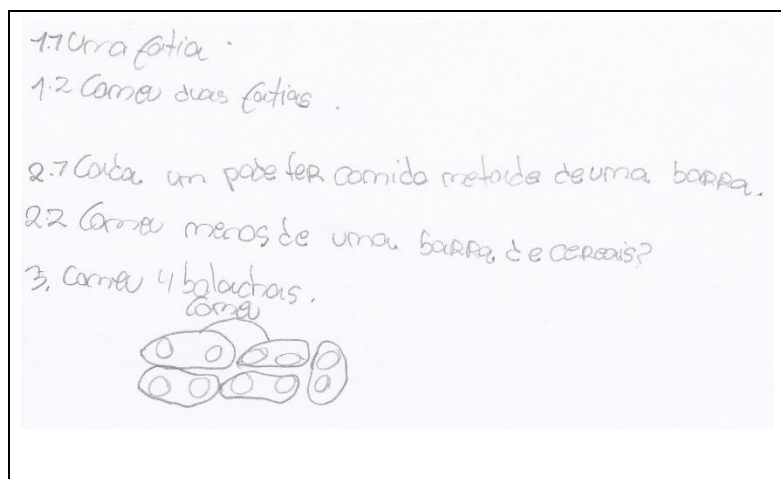 1.1 Uma fatia.
1.2 Comeu duas fatias.
2.1 Cada um pode ter comido metade de uma barra.
2.2 Comeu menos de uma barra de cereais?
3. Comeu 4 bolachas.
Comeu